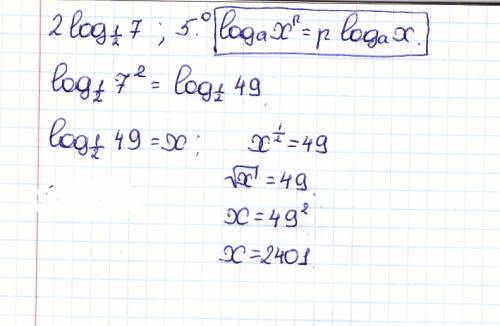 2 log_{1/2} 7 ; 5.° log_a x^p = p log_a x.
log_{1/2} 7² = log_{1/2} 49
log_{1/2} 49 = x; x^{1/2} = 49
√x = 49
x = 49²
x = 2401